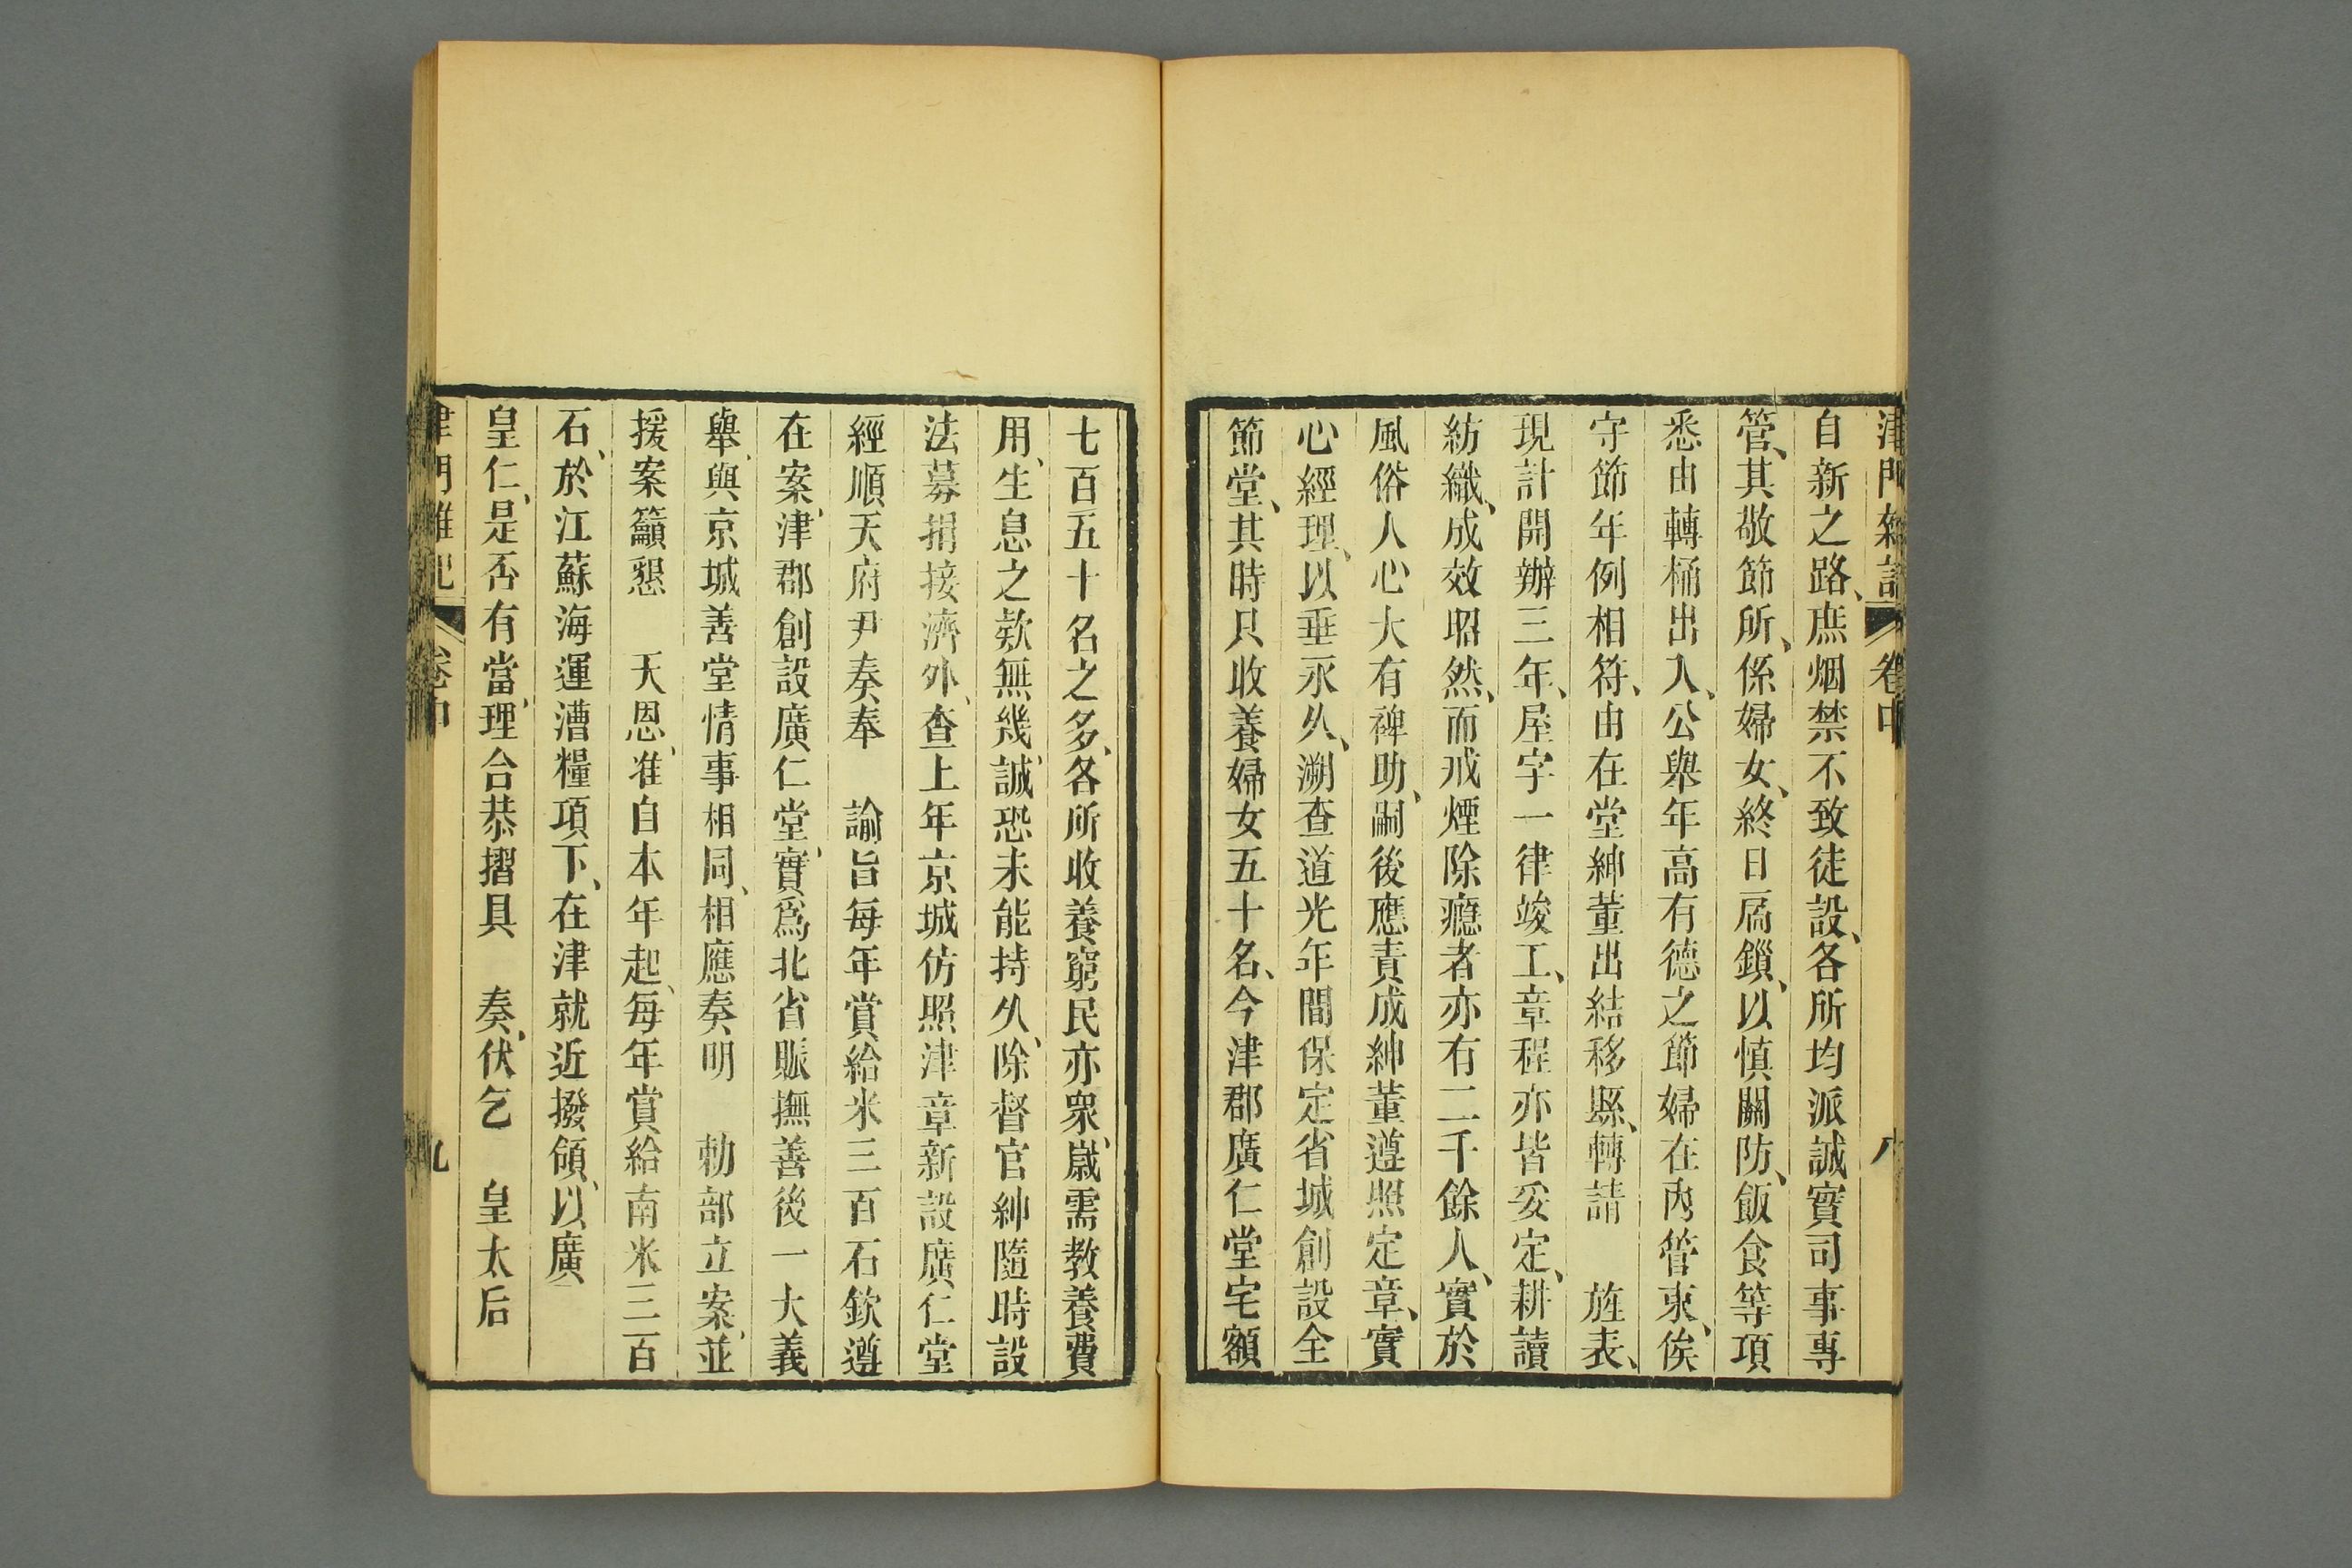 津門雜記 卷中 八
自新之路、庶烟禁不致徒設、各所均派誠實司事專
管、其敬節所、係婦女、終日扃鎖、以慎關防、飯食等項
悉由轉桶出入、公舉年高有德之節婦在內管束、俟
守節年例相符、由在堂紳董出結移縣、轉請 旌表、
現計開辦三年、屋宇一律竣工、章程亦皆妥定、耕讀
紡織、成效昭然、而戒煙除癮者亦有二千餘人、實於
風俗人心大有裨助、嗣後應責成紳董遵照定章、實
心經理、以垂永久、溯查道光年間保定省城創設全
節堂、其時只收養婦女五十名、今津郡廣仁堂宅額
七百五十名之多、各所收養窮民亦衆、嵗需教養費
用、生息之欵無幾、誠恐未能持久、除督官紳隨時設
法募捐接濟外、查上年京城仿照津章新設廣仁堂
經順天府尹奏奉 諭旨每年賞給米三百石欽遵
在案、津郡創設廣仁堂、實爲北省賑撫善後一大義
舉、與京城善堂情事相同、相應奏明 勅部立案、並
援案籲懇 天恩、准自本年起、每年賞給南米三百
石、於江蘇海運漕糧項下、在津就近撥領、以廣
皇仁、是否有當、理合恭摺具 奏、伏乞 皇太后
津門雜記 卷中 九